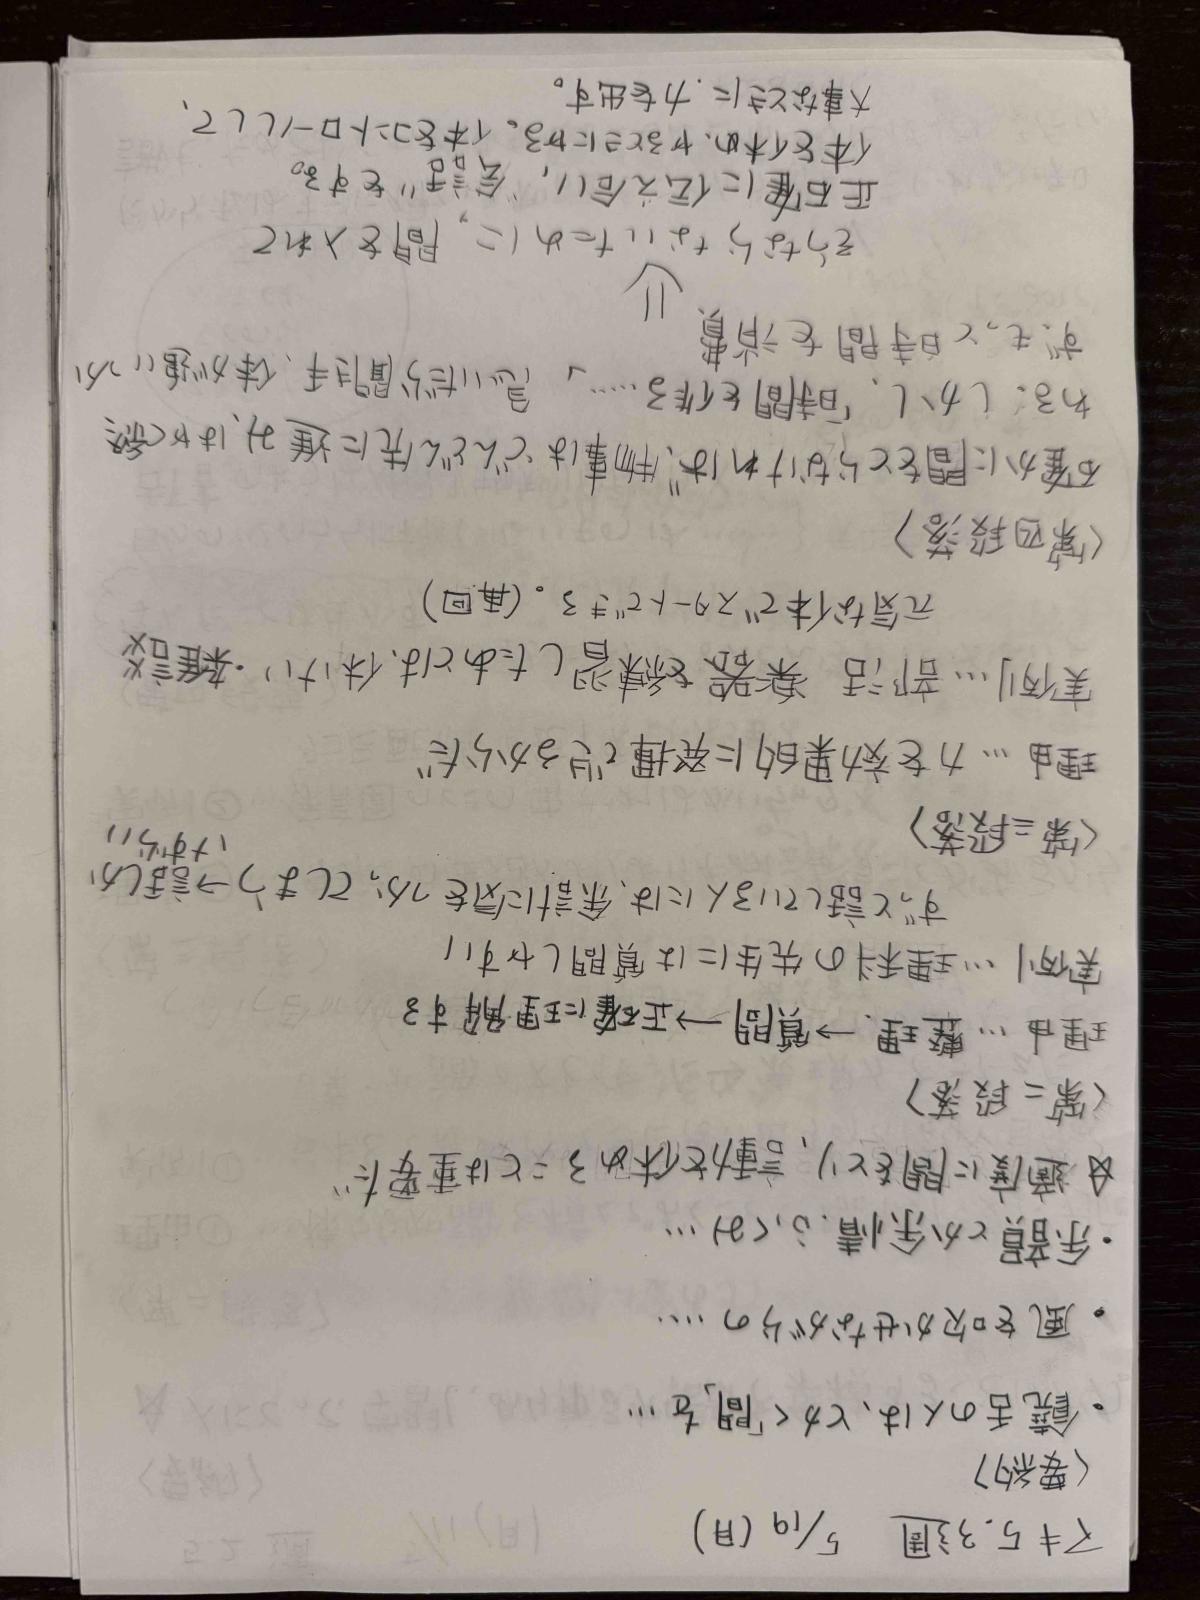 スキ5.3週 5/19(月)
〈要約〉
・饒舌の人は、とかく「間」を…
・風を吹かせながらの……
・余韻とか余情、ふくみ…
☆適度に間をとり、言動を休めることは重要だ
〈第二段落〉
理由…整理→質問→正確に理解する
実例…理科の先生には質問しやすい
ずっと話している人には、余計に気をつかってしまう→話しか
けずらい
〈第三段落〉
理由…力を効果的に発揮できるからだ
実例…部活 楽器を練習したあとは、休けい・雑談
元気な体でスタートできる。(再回)
〈第四段落〉
確かに間をとらなければ、物事はどんどん先に進み、はやく終
わる。しかし、「時間を作る……」 急いだら聞き手、体が追いつか
ず、もっと時間を消費
⇓
そうならないために、間を入れて
正確に伝え合い、"会話"をする。
体を休め、やることにやる。体をコントロールして、
大事なときに、力を出す。